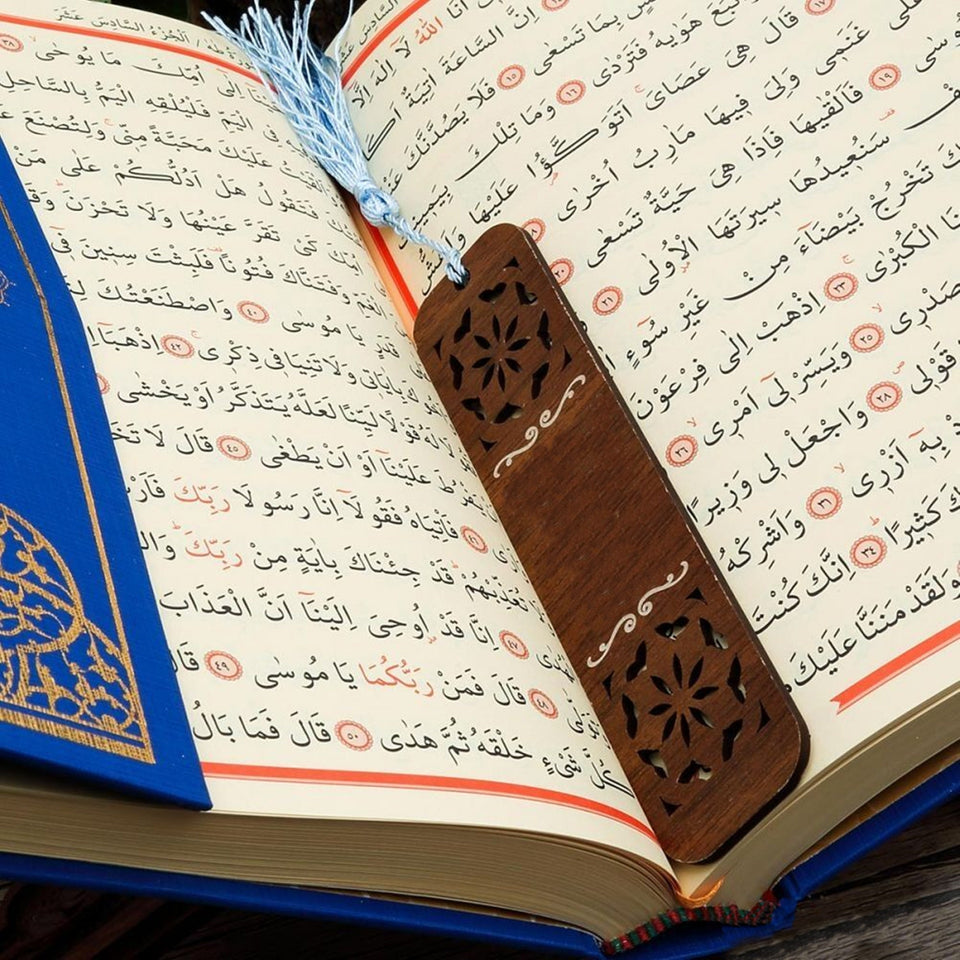 اَنَا اللّٰهُ لَٓا اِلٰهَ
اِنَّ السَّاعَةَ اٰتِيَةٌ
بِمَا تَسْعٰى ١٥ فَلَا يَصُدَّنَّكَ
هَوٰيهُ فَتَرْدٰى ١٦ وَمَا تِلْكَ
١٧ قَالَ هِىَ عَصَاىَ اَتَوَكَّؤُ۬ا عَلَيْهَا
غَنَمِى وَلِىَ فِيهَا مَاٰرِبُ اُخْرٰى
١٩ فَاَلْقٰيهَا فَاِذَا هِىَ حَيَّةٌ تَسْعٰى ٢٠
سَنُعِيدُهَا سِيرَتَهَا الْاُولٰى ٢١
تَخْرُجْ بَيْضَٓاءَ مِنْ غَيْرِ سُٓوءٍ
الْكُبْرٰى ٢٣ اِذْهَبْ اِلٰى فِرْعَوْنَ
صَدْرِى ٢٥ وَيَسِّرْ لِٓى اَمْرِى ٢٦
قَوْلِى ٢٨ وَاجْعَلْ لِى وَزِيرًا
بِهٖٓ اَزْرِى ٣١ وَاَشْرِكْهُ
كَثِيرًا ٣٤ اِنَّكَ كُنْتَ
وَلَقَدْ مَنَنَّا عَلَيْكَ
اِلٰٓى اُمِّكَ مَا يُوحٰى ٣٨
فِى الْيَمِّ فَلْيُلْقِهِ الْيَمُّ بِالسَّاحِلِ
عَلَيْكَ مَحَبَّةً مِنِّى وَلِتُصْنَعَ
فَتَقُولُ هَلْ اَدُلُّكُمْ عَلٰى مَنْ
اُمِّكَ كَىْ تَقَرَّ عَيْنُهَا وَلَا تَحْزَنَ
وَفَتَنَّاكَ فُتُونًا فَلَبِثْتَ سِنِينَ فِٓى
قَدَرٍ يَا مُوسٰى ٤٠ وَاصْطَنَعْتُكَ
بِاٰيَاتِى وَلَا تَنِيَا فِى ذِكْرِى ٤٢ اِذْهَبَٓا
لَهُ قَوْلًا لَيِّنًا لَعَلَّهُ يَتَذَكَّرُ اَوْ يَخْشٰى
عَلَيْنَٓا اَوْ اَنْ يَطْغٰى ٤٥ قَالَ لَا
٤٦ فَاْتِيَاهُ فَقُولَٓا اِنَّا رَسُولَا رَبِّكَ
تُعَذِّبْهُمْ قَدْ جِئْنَاكَ بِاٰيَةٍ مِنْ رَبِّكَ
٤٧ اِنَّا قَدْ اُوحِىَ اِلَيْنَٓا اَنَّ الْعَذَابَ
٤٨ قَالَ فَمَنْ رَبُّكُمَا يَا مُوسٰى ٤٩
كُلَّ شَیْءٍ خَلْقَهُ ثُمَّ هَدٰى ٥٠ قَالَ فَمَا بَالُ